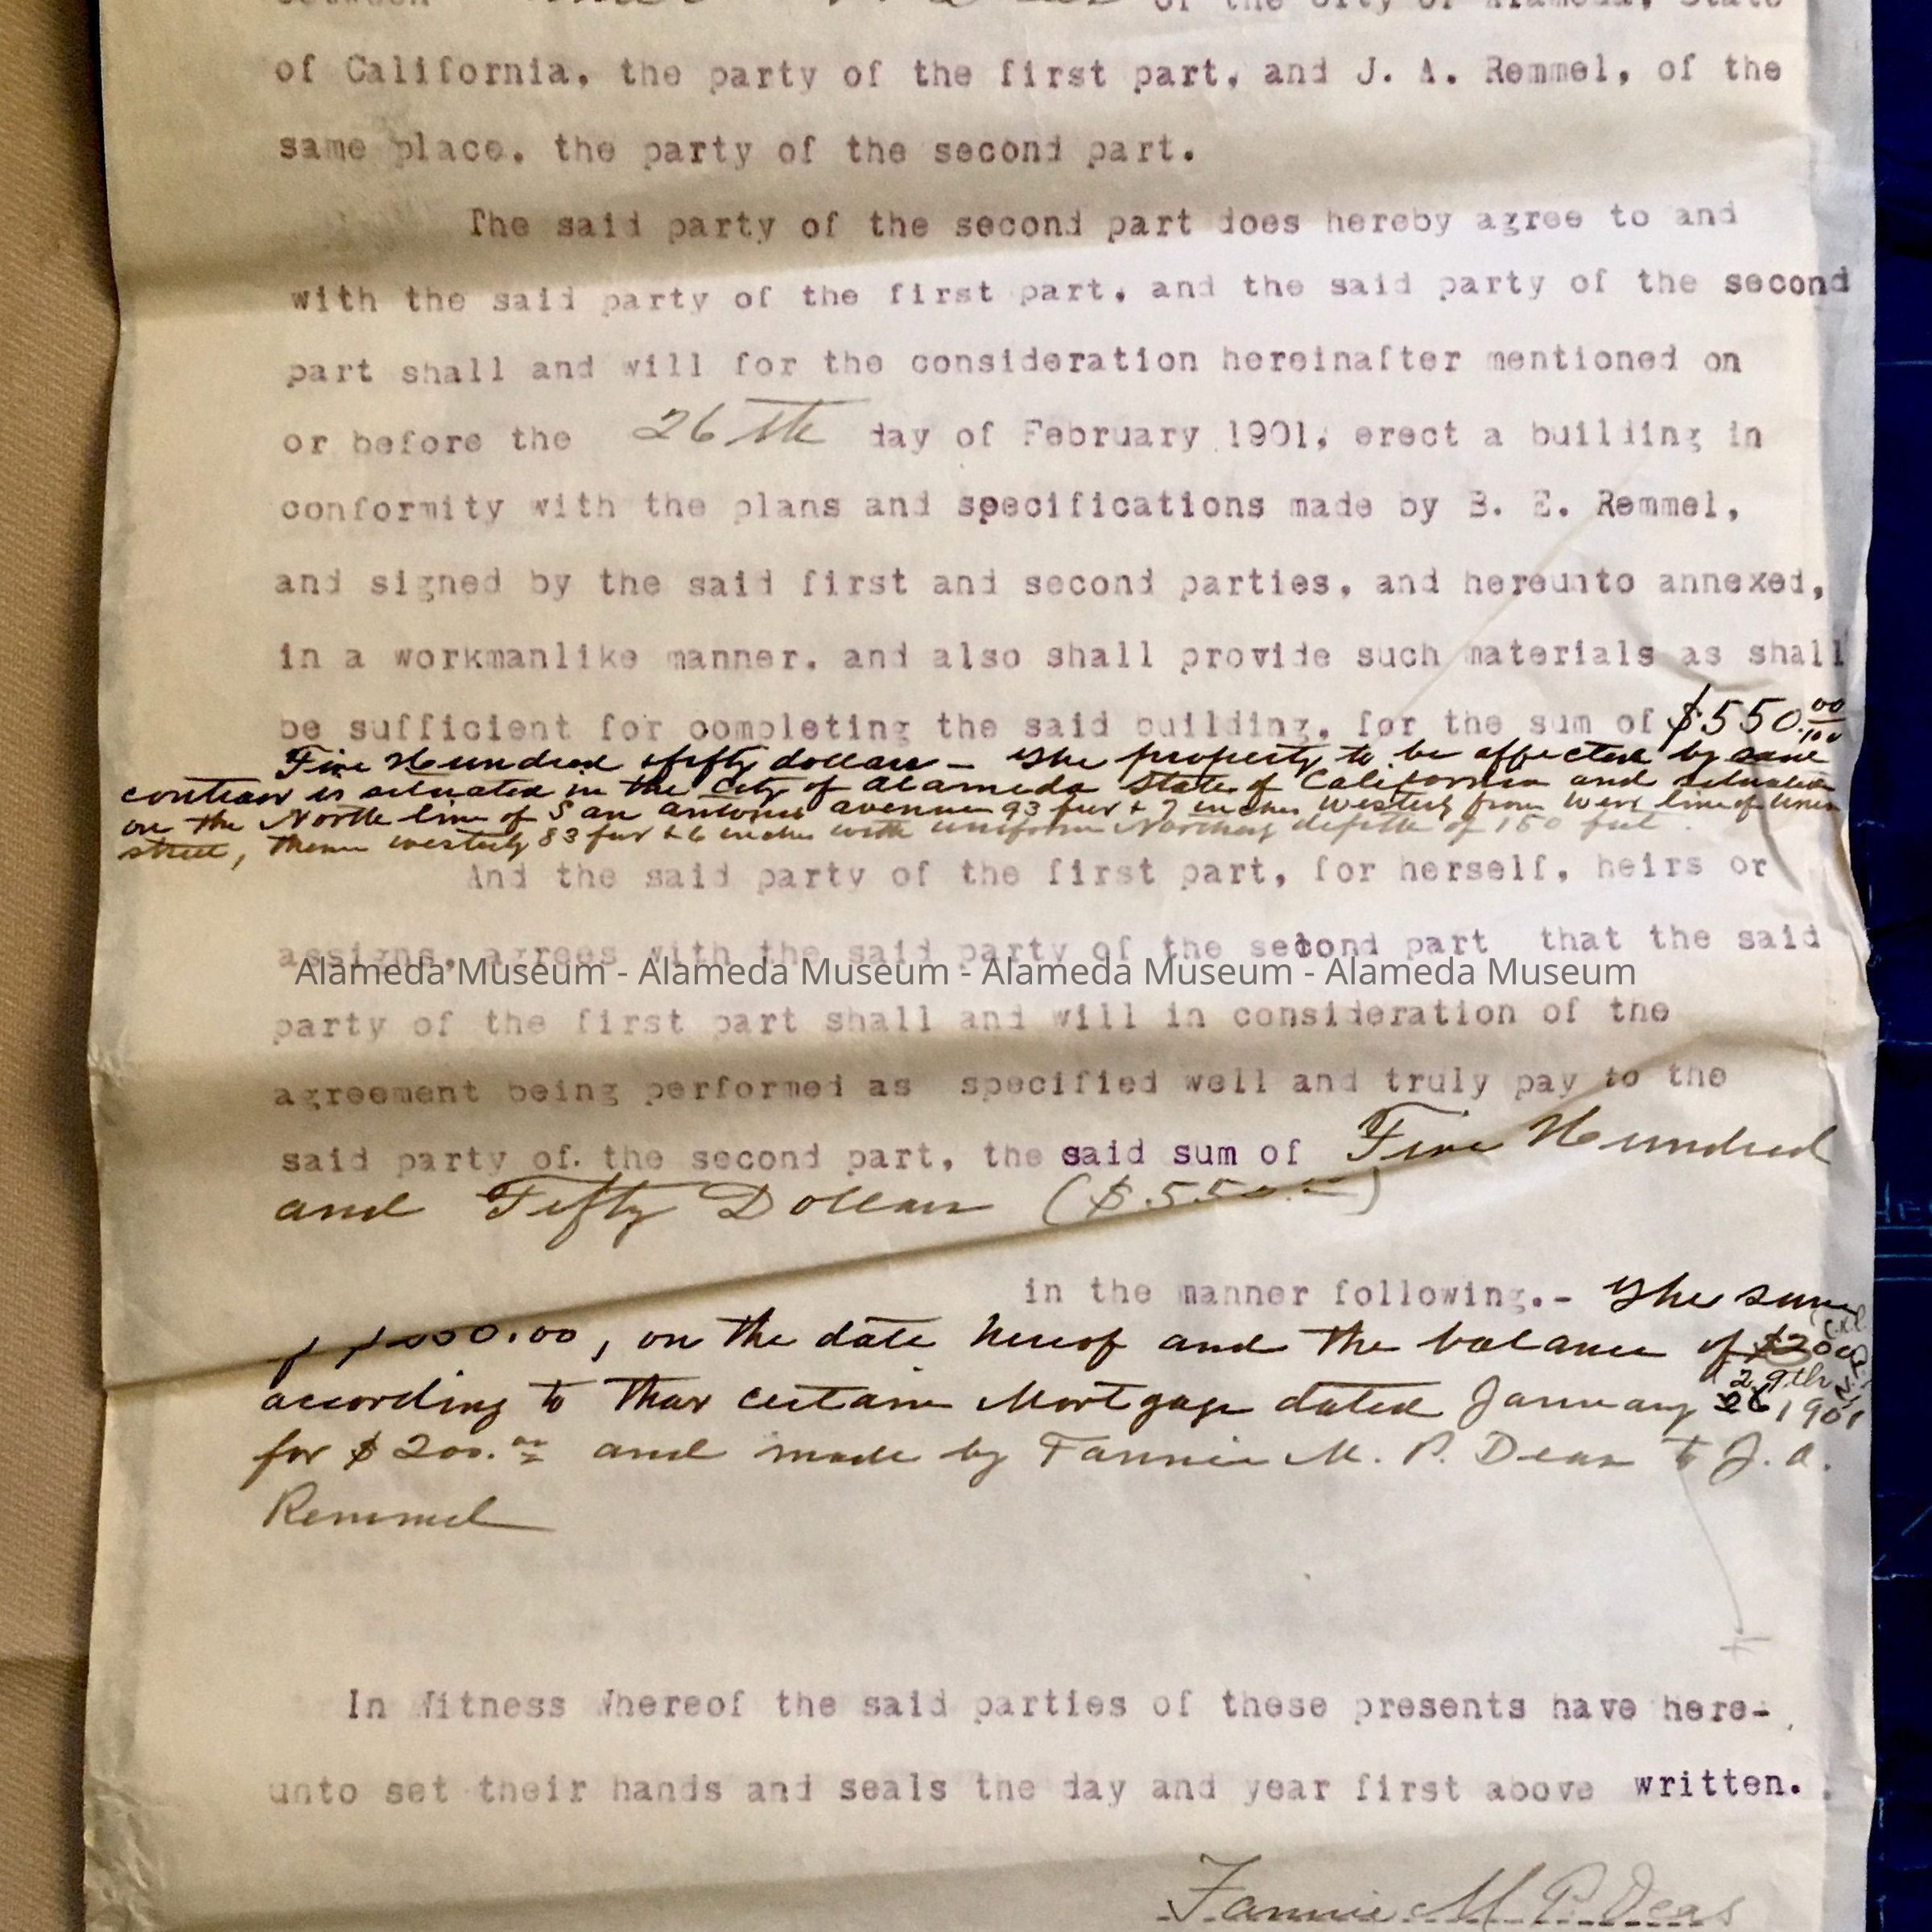 of the City of Alameda, State
of California, the party of the first part, and J. A. Remmel, of the
same place, the party of the second part.
The said party of the second part does hereby agree to and
with the said party of the first part, and the said party of the second
part shall and will for the consideration hereinafter mentioned on
or before the 26th day of February 1901, erect a building in
conformity with the plans and specifications made by B. E. Remmel,
and signed by the said first and second parties, and hereunto annexed,
in a workmanlike manner, and also shall provide such materials as shall
be sufficient for completing the said building, for the sum of $550.00/100
Five Hundred & fifty dollars - The property to be affected by said
contract is situated in the City of Alameda State of California and situated
on the North line of San Antonio avenue 93 feet & 7 inches westerly from West line of Union
street, thence westerly 83 feet & 6 inches with uniform Northerly depth of 150 feet.
And the said party of the first part, for herself, heirs or
assigns, agrees with the said party of the second part that the said
Alameda Museum - Alameda Museum - Alameda Museum - Alameda Museum
party of the first part shall and will in consideration of the
agreement being performed as specified well and truly pay to the
said party of. the second part, the said sum of Five Hundred
and Fifty Dollars ($550.00)
in the manner following.- The sum
on the date hereof and the balance of $200
29th
according to that certain Mortgage dated January 26 1901
for $200.00 and made by Fannie M. P. Deas to J. A.
Remmel
In Witness Whereof the said parties of these presents have here-
unto set their hands and seals the day and year first above written.
Fannie M. P. Deas